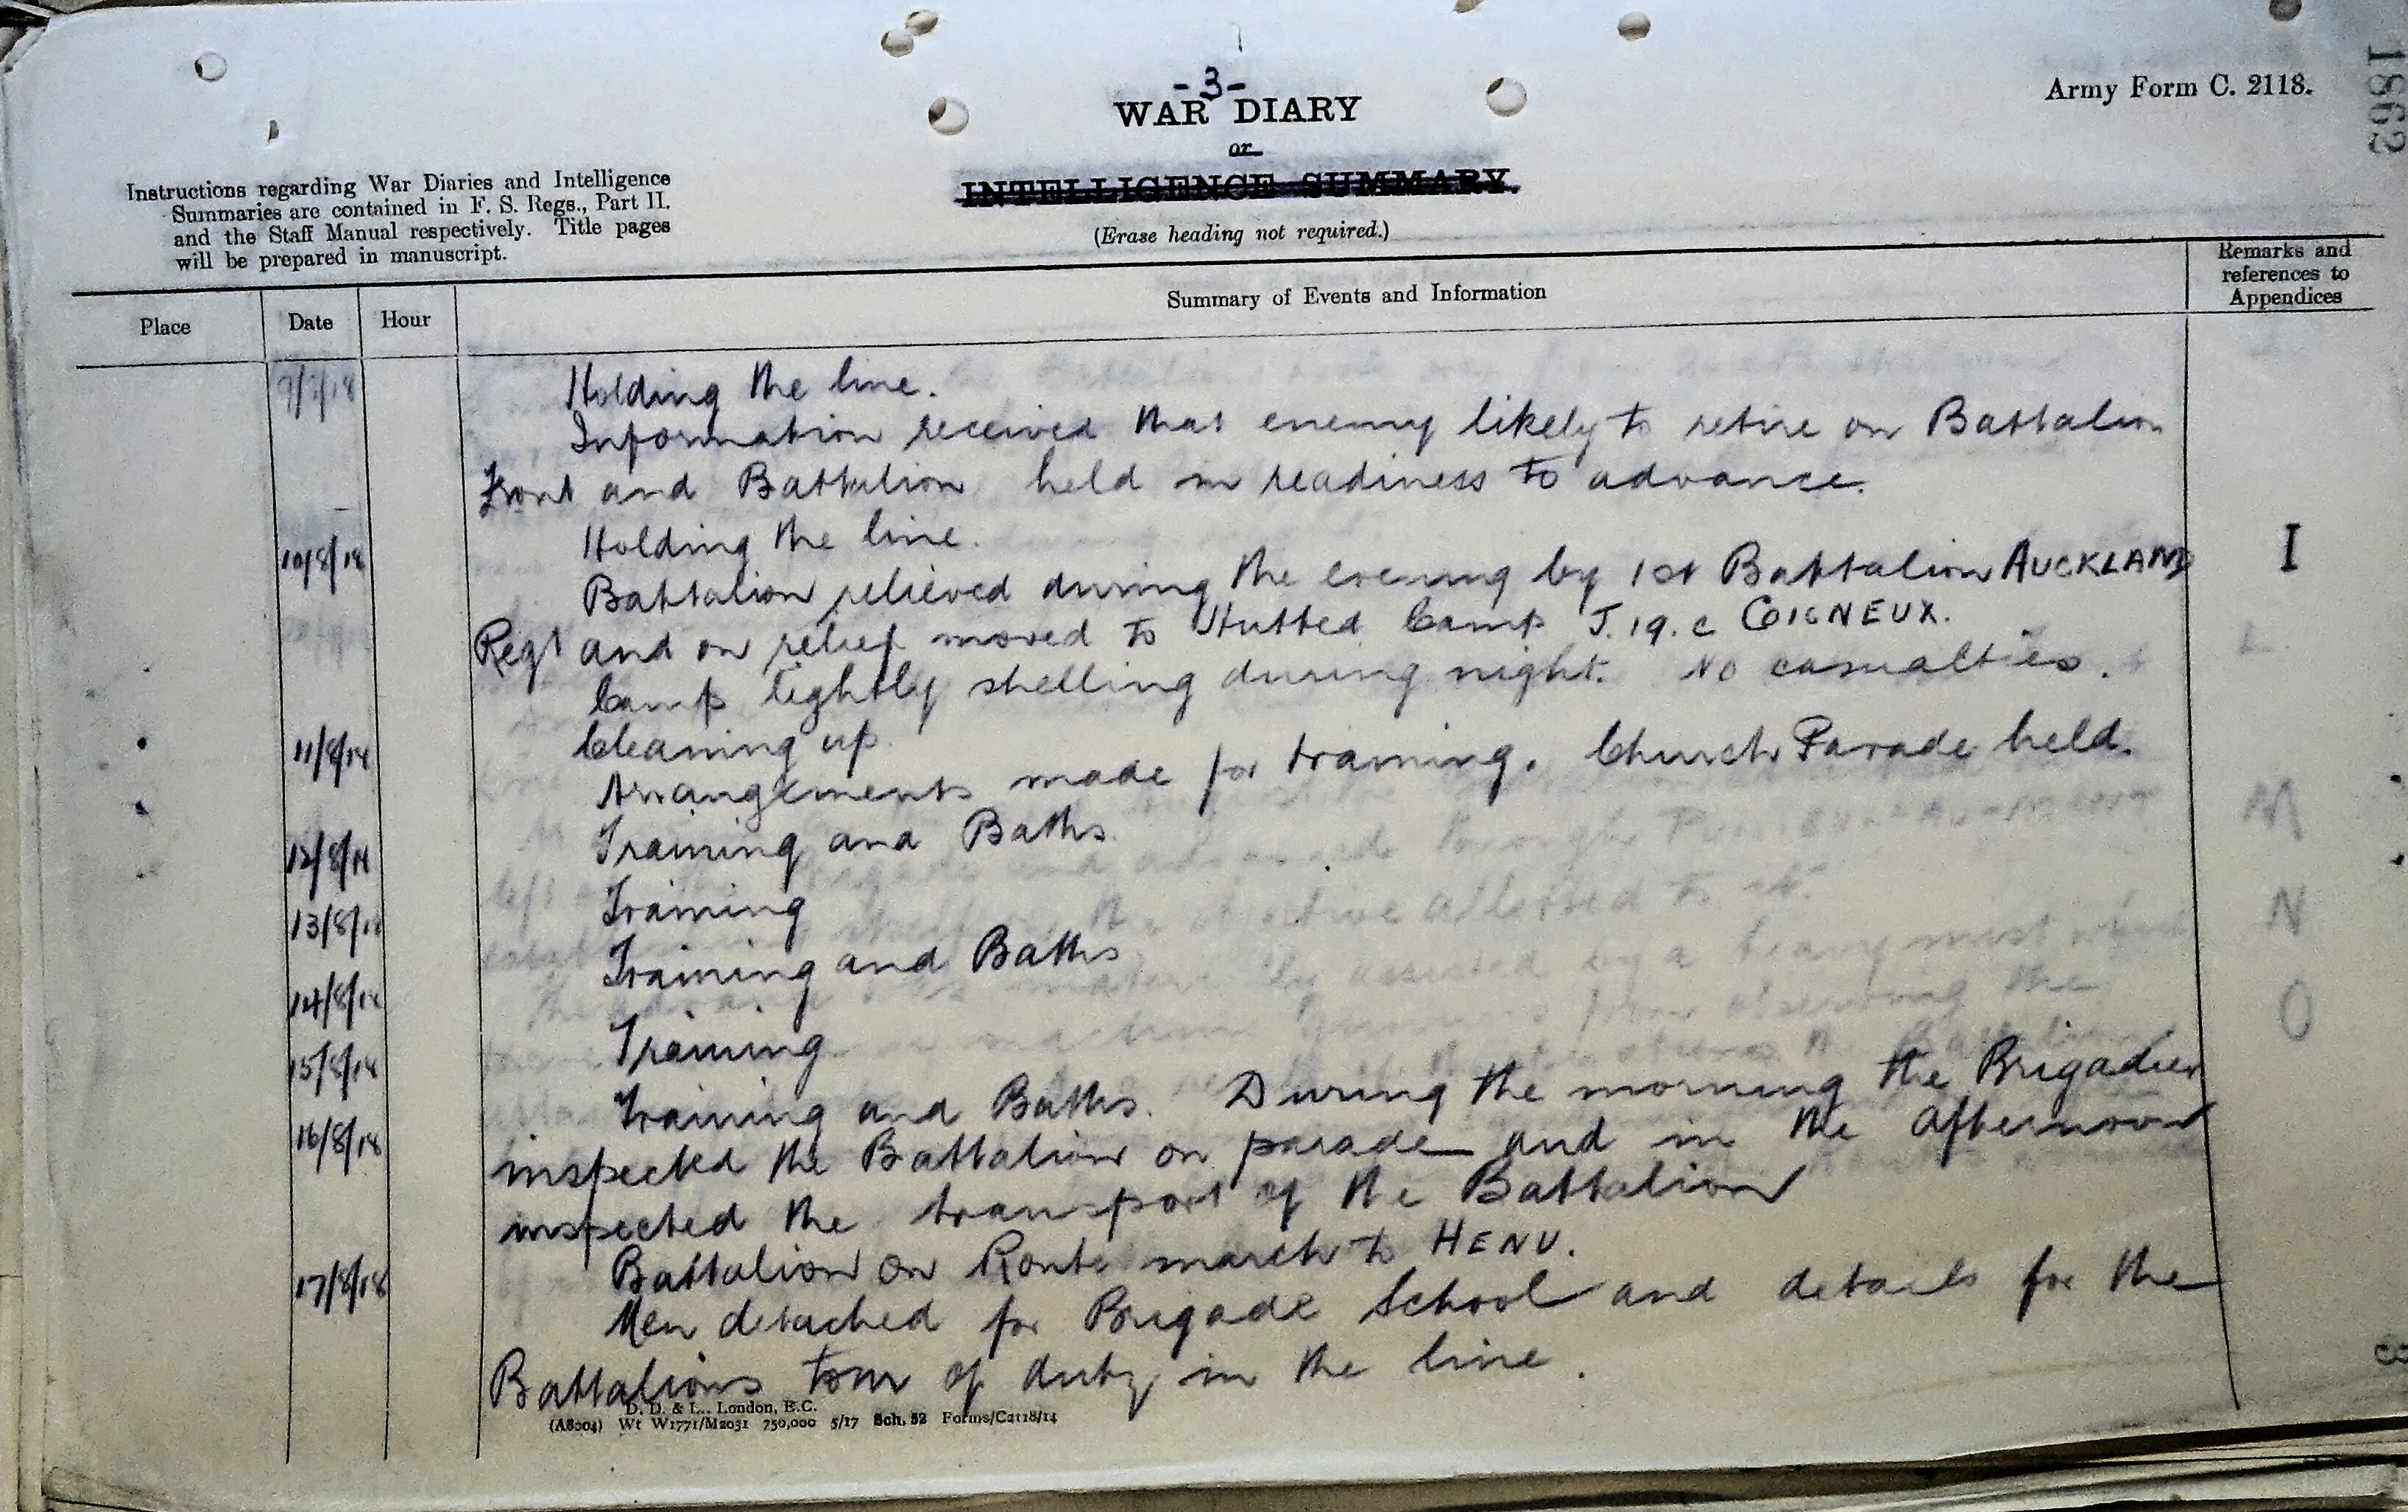 -3-
WAR DIARY
or
INTELLIGENCE SUMMARY.
(Erase heading not required.)
Army Form C. 2118.
1862
Instructions regarding War Diaries and Intelligence
Summaries are contained in F. S. Regs., Part II.
and the Staff Manual respectively. Title pages
will be prepared in manuscript.
Place Date Hour Summary of Events and Information Remarks and references to Appendices
9/8/18 Holding the line.
Information received that enemy likely to retire on Battalion
Front and Battalion held in readiness to advance.
10/8/18 Holding the line.
Battalion relieved during the evening by 1st Battalion AUCKLAND I
Regt and on relief moved to Hutted Camp J.19.c COIGNEUX.
Camp lightly shelling during night. No casualties.
11/8/18 Cleaning up.
Arrangements made for training. Church Parade held.
12/8/18 Training and Baths.
13/8/18 Training
14/8/18 Training and Baths
15/8/18 Training
16/8/18 Training and Baths. During the morning the Brigadier
inspected the Battalion on parade and in the afternoon
inspected the transport of the Battalion
17/8/18 Battalion on Route march to HENU.
Men detached for Brigade School and details for the
Battalions tour of duty in the line.
D. D. & L., London, E.C.
(A8004) Wt W1771/M2031 750,000 5/17 Sch. 52 Forms/C2118/14
L
M
N
O